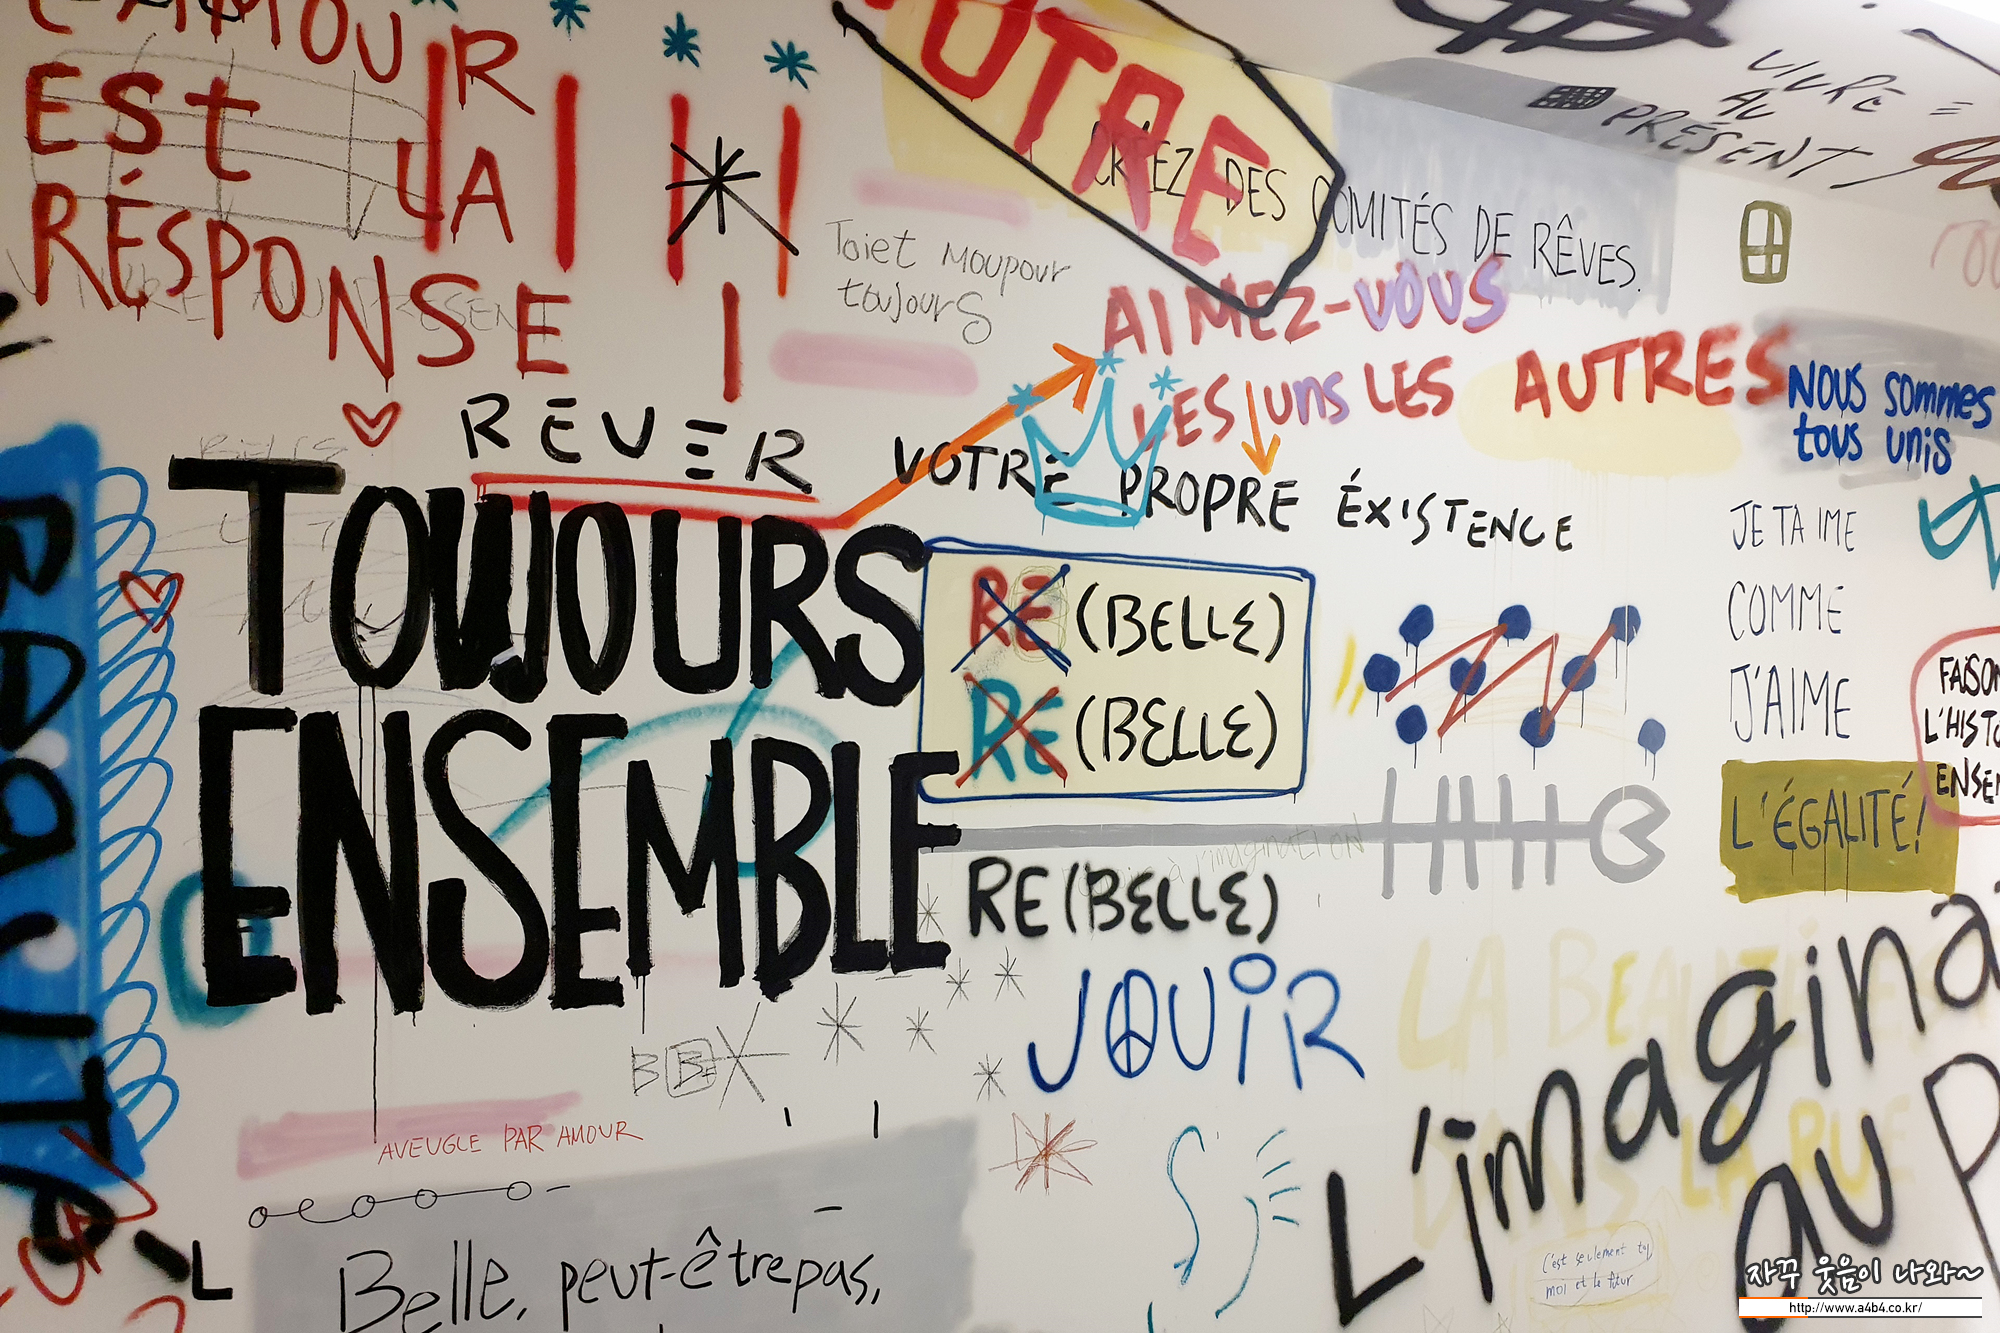 L'AMOUR
EST LA
RÉSPONSE
VIVRE AU PRÉSENT
OTRE
CRÉEZ DES COMITÉS DE RÊVES.
VIVRE
AU
PRÉSENT
Toiet Moupour
toujours
AIMEZ-VOUS
LES uns LES AUTRES
NOUS sommes
tous unis
REVER
VOTRE PROPRE ÉXISTENCE
TOUJOURS
ENSEMBLE
BEAUTÉ
RE (BELLE)
RE (BELLE)
RE (BELLE)
JE TA IME
COMME
J'AIME
FAISON
L'HISTO
ENSEM
L'ÉGALITÉ!
à l'imagination
JOUIR
LA BEAUTÉ EST
DANS LA RUE
L'imagina
au P
AVEUGLE PAR AMOUR
L
Belle, peut-être pas,
C'est seulement toi
moi et le futur
자꾸 웃음이 나와~
http://www.a4b4.co.kr/